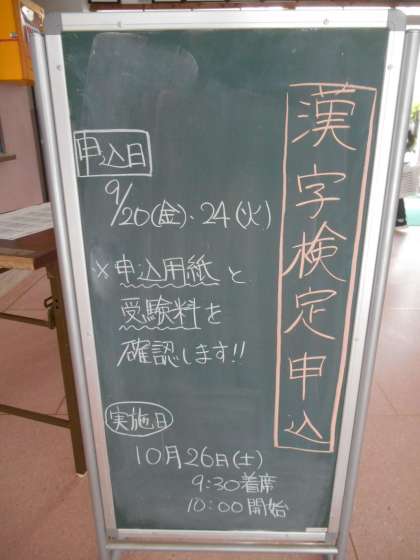 漢字検定申込
申込日
9/20(金)・24(火)
※申込用紙と
受験料を
確認します!!
実施日
10月26日(土)
9:30着席
10:00開始